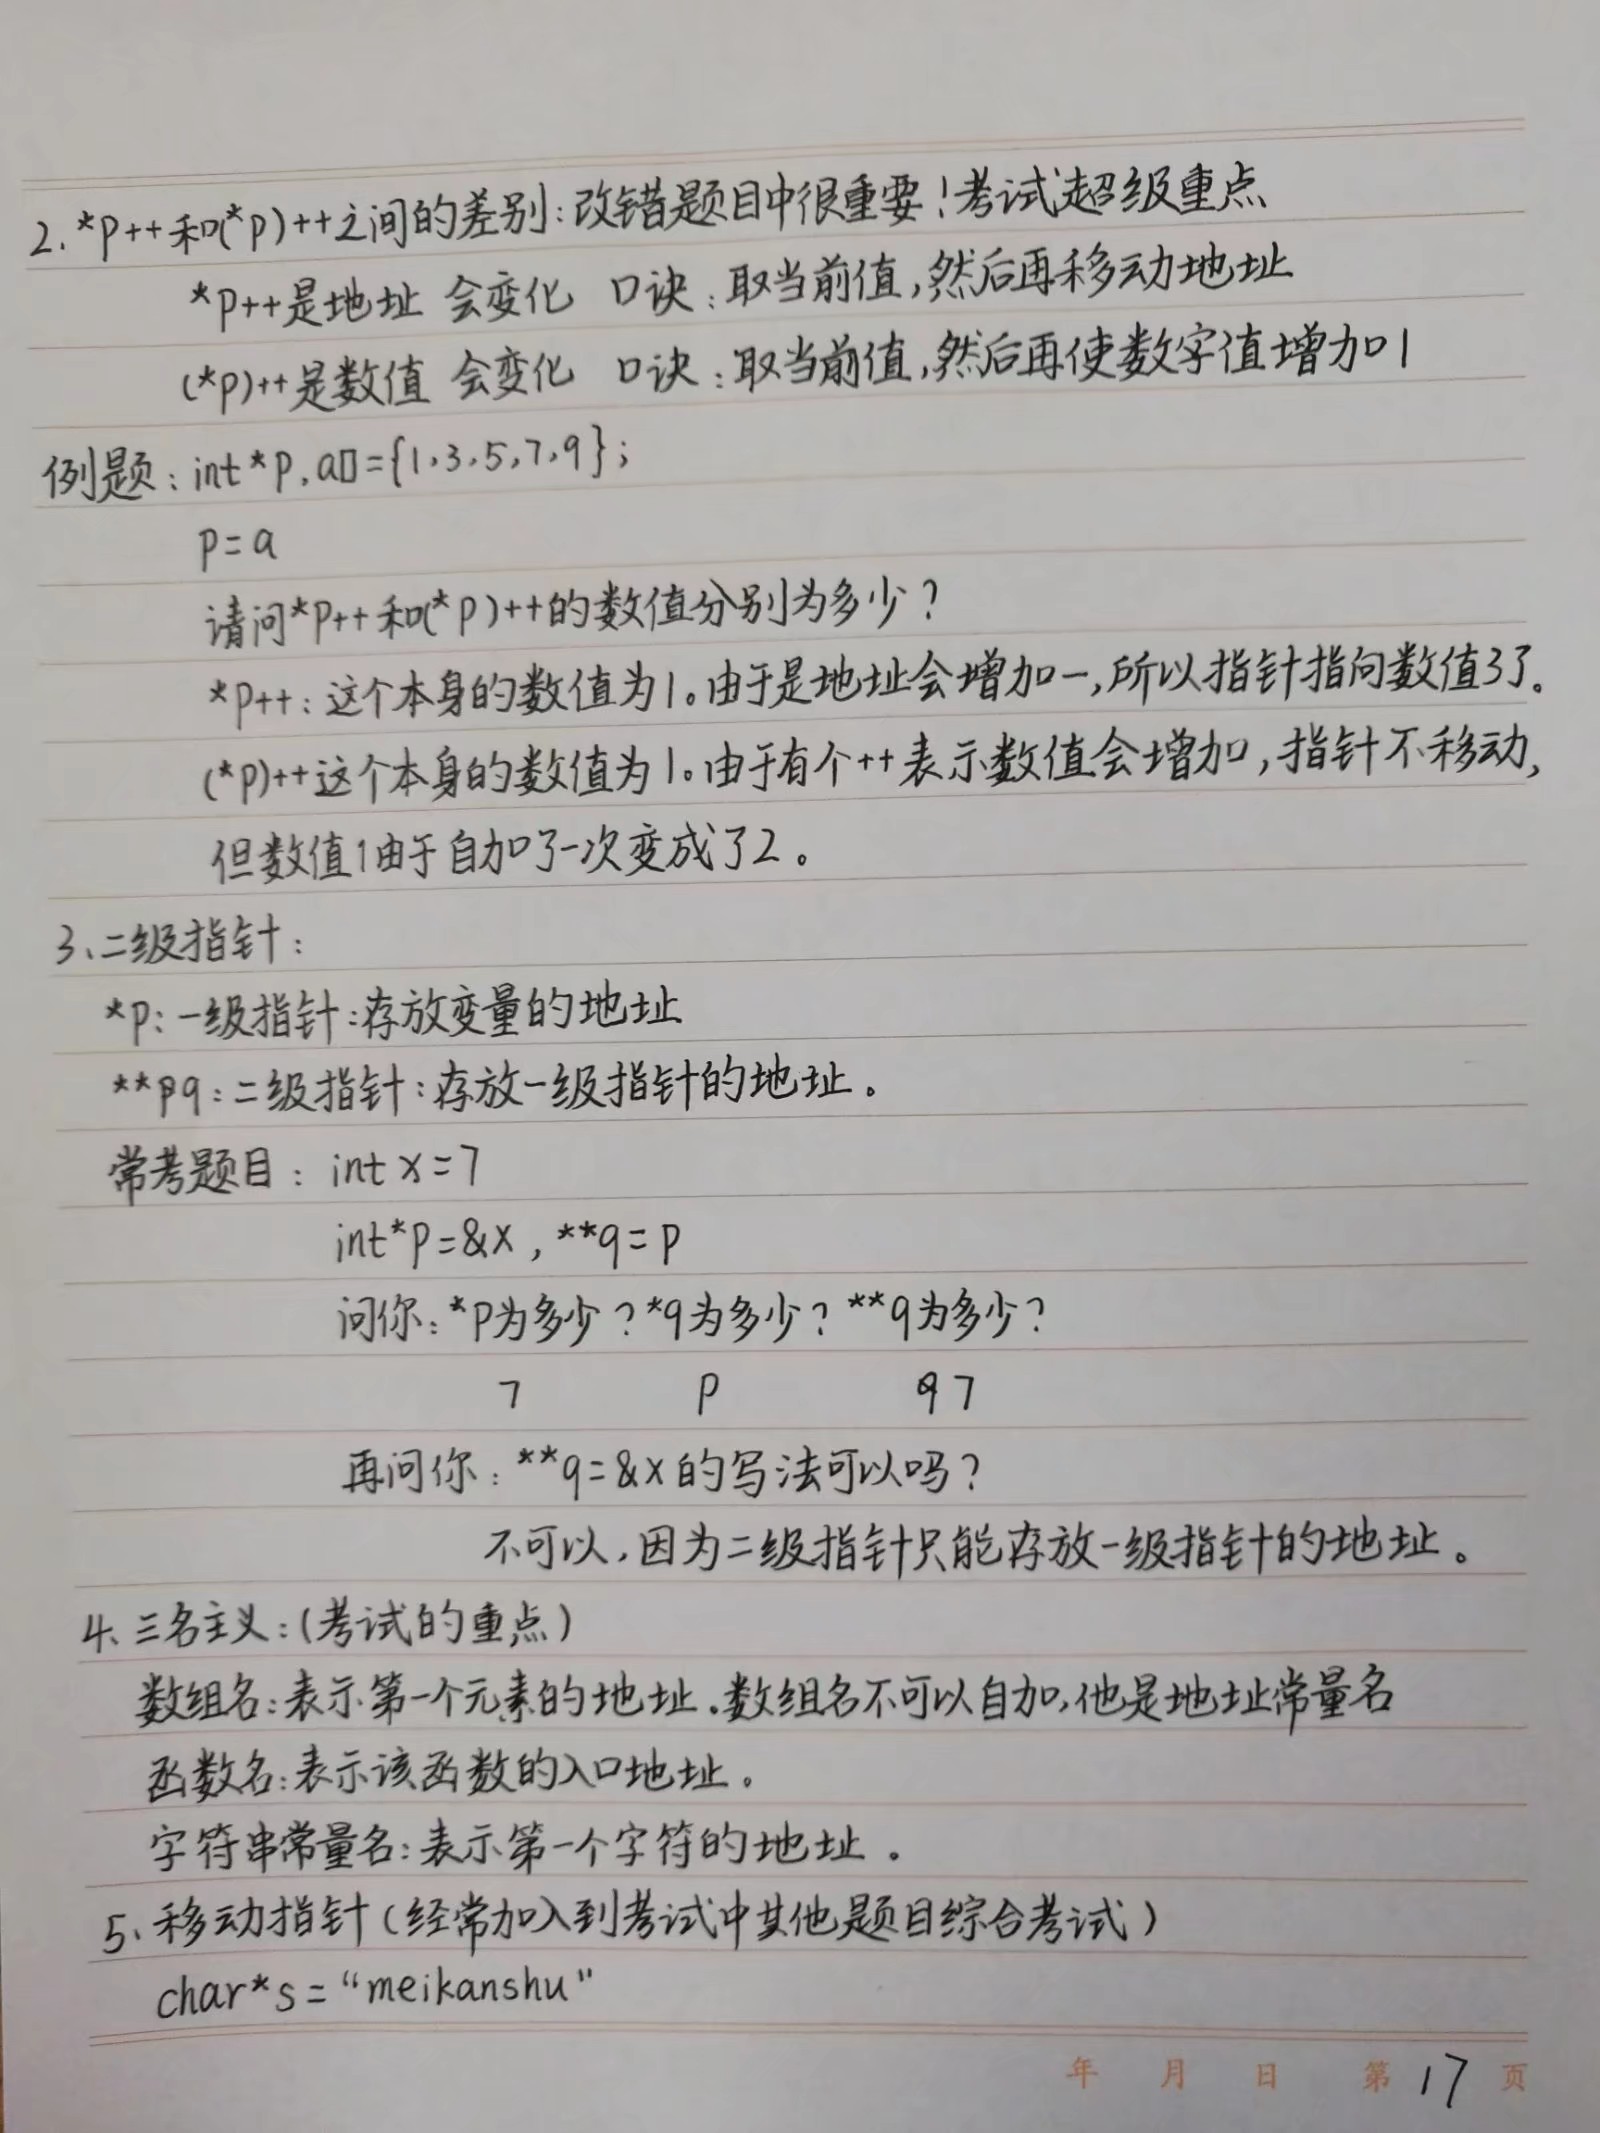 2.*p++和(*p)++之间的差别:改错题目中很重要!考试超级重点
*p++是地址 会变化 口诀:取当前值,然后再移动地址
(*p)++是数值 会变化 口诀:取当前值,然后再使数字值增加1
例题:int*p,a[]={1,3,5,7,9};
p=a
请问*p++和(*p)++的数值分别为多少?
*p++:这个本身的数值为1。由于是地址会增加一,所以指针指向数值3了。
(*p)++这个本身的数值为1。由于有个++表示数值会增加,指针不移动,
但数值1由于自加了一次变成了2。
3、二级指针:
*p:一级指针:存放变量的地址
**q:二级指针:存放一级指针的地址。
常考题目:int x=7
int*p=&x,**q=p
问你:*p为多少?*q为多少?**q为多少?
7 p 7
再问你:**q=&x的写法可以吗?
不可以,因为二级指针只能存放一级指针的地址。
4、三名主义:(考试的重点)
数组名:表示第一个元素的地址.数组名不可以自加,他是地址常量名
函数名:表示该函数的入口地址.
字符串常量名:表示第一个字符的地址.
5、移动指针(经常加入到考试中其他题目综合考试)
char*s="meikanshu"
年 月 日 第17页